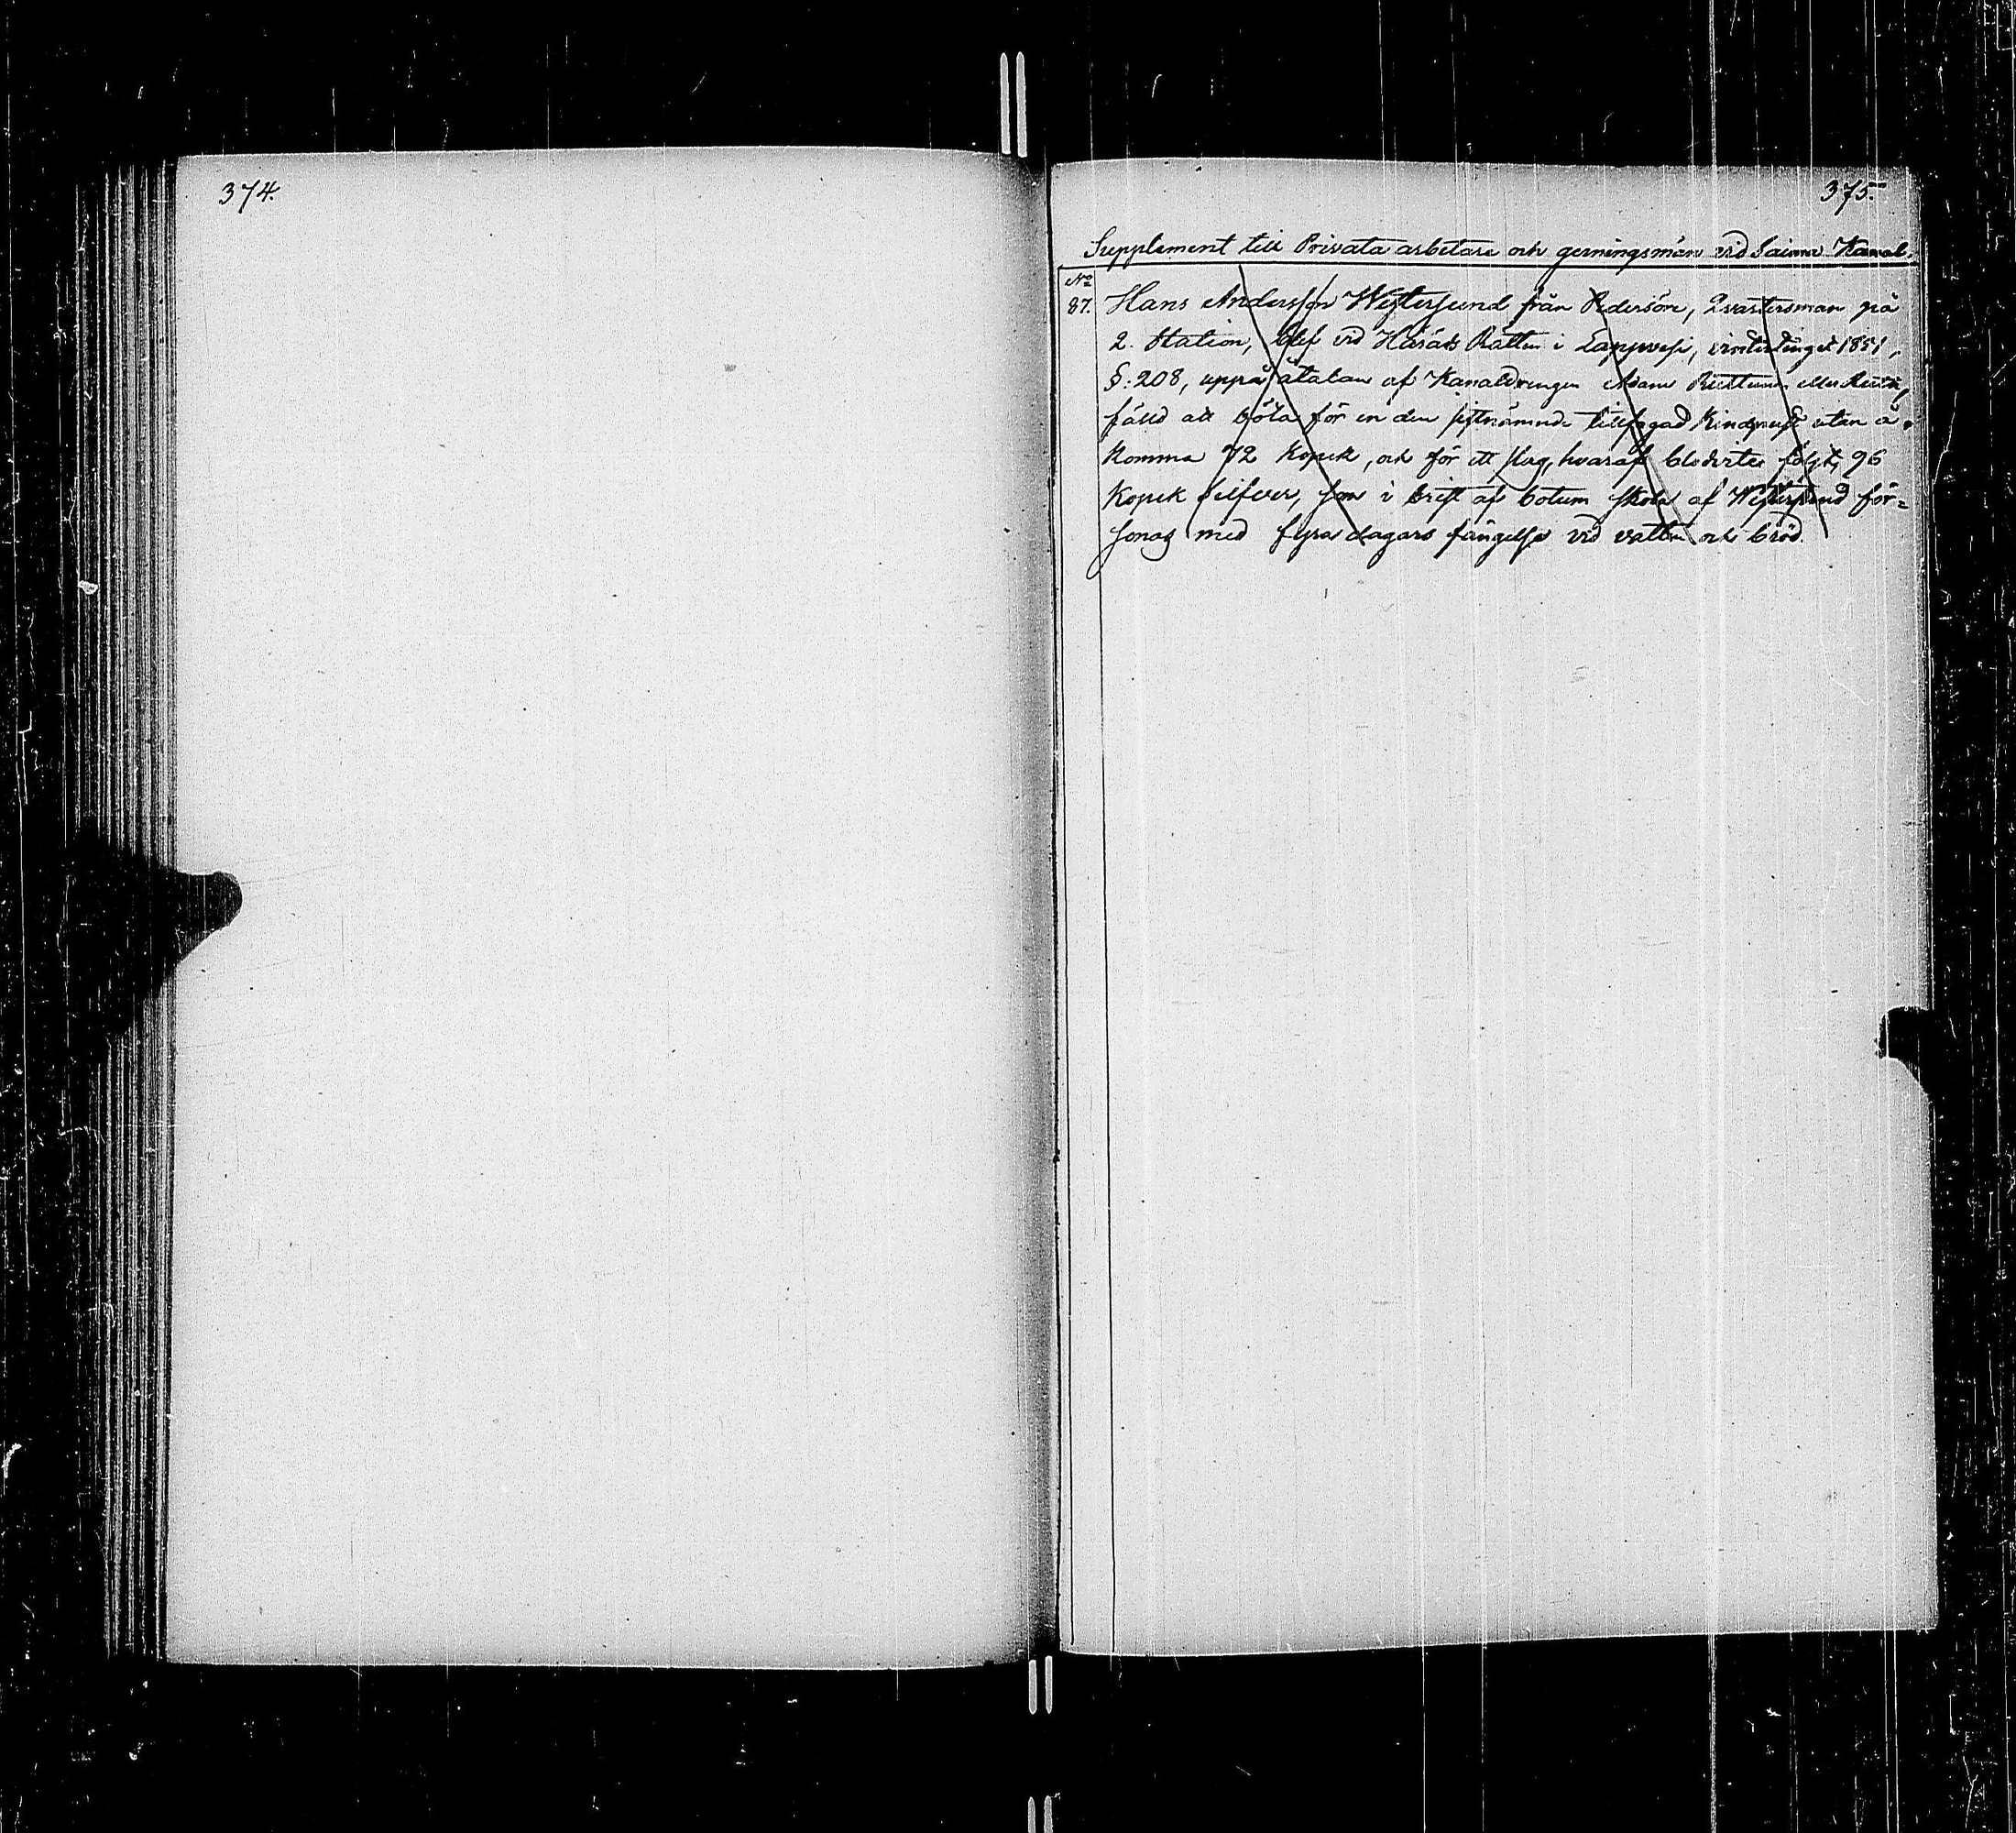 374.
375.
Supplement till Privata arbetare och gerningsmän vid Saima Kanal.
No
87. Hans Andersson Westersund från Pedersöre, Qvartersman på
2. Station, blef vid Härads Rätten i Lappvesi, vintertinget 1851,
§: 208, uppå åtalan af Kanaldrengen Adam eller
fälld att böta för en den sistnämnde tillfogad Kindpust utan å-
komma 72 Kopek, och för ett slag, hvaraf blodvite följt, 96
Kopek silfver, som i brist af botum skola af Westersund för-
sonas med fyra dagars fängelse vid vatten och bröd.